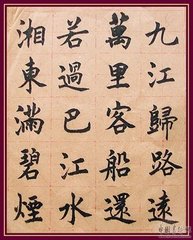 九江歸路遠
萬里客船還
若過巴江水
湘東滿碧煙